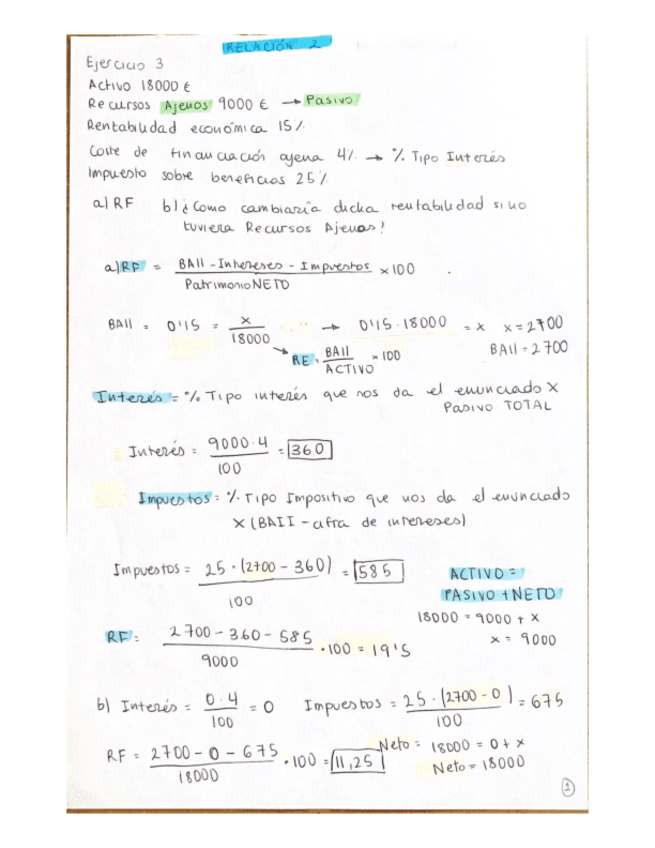 RELACIÓN 2
Ejercicio 3
Activo 18000 €
Recursos Ajenos 9000 € → Pasivo
Rentabilidad económica 15%
Coste de financiación ajena 4% → % Tipo Interés
Impuesto sobre beneficios 25%
a) RF b) ¿Como cambiaría dicha rentabilidad si no
tuviera Recursos Ajenos?
a) RF = BAII - Intereses - Impuestos / Patrimonio NETO × 100
BAII = 0'15 = x / 18000 → 0'15 · 18000 = x x = 2700
RE = BAII / ACTIVO × 100 BAII = 2700
Interés = % Tipo interés que nos da el enunciado X
Pasivo TOTAL
Interés = 9000·4 / 100 = 360
Impuestos = % Tipo Impositivo que nos da el enunciado
X (BAII - cifra de intereses)
Impuestos = 25 · (2700 - 360) / 100 = 585
ACTIVO =
PASIVO + NETO
18000 = 9000 + x
x = 9000
RF = 2700 - 360 - 585 / 9000 · 100 = 19'5
b) Interés = 0·4 / 100 = 0 Impuestos = 25 · (2700 - 0) / 100 = 675
RF = 2700 - 0 - 675 / 18000 · 100 = 11,25
Neto = 18000 = 0 + x
Neto = 18000
1